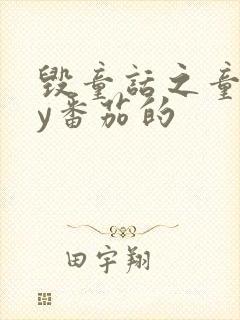 毁童话之童
y番茄的
田宇翔